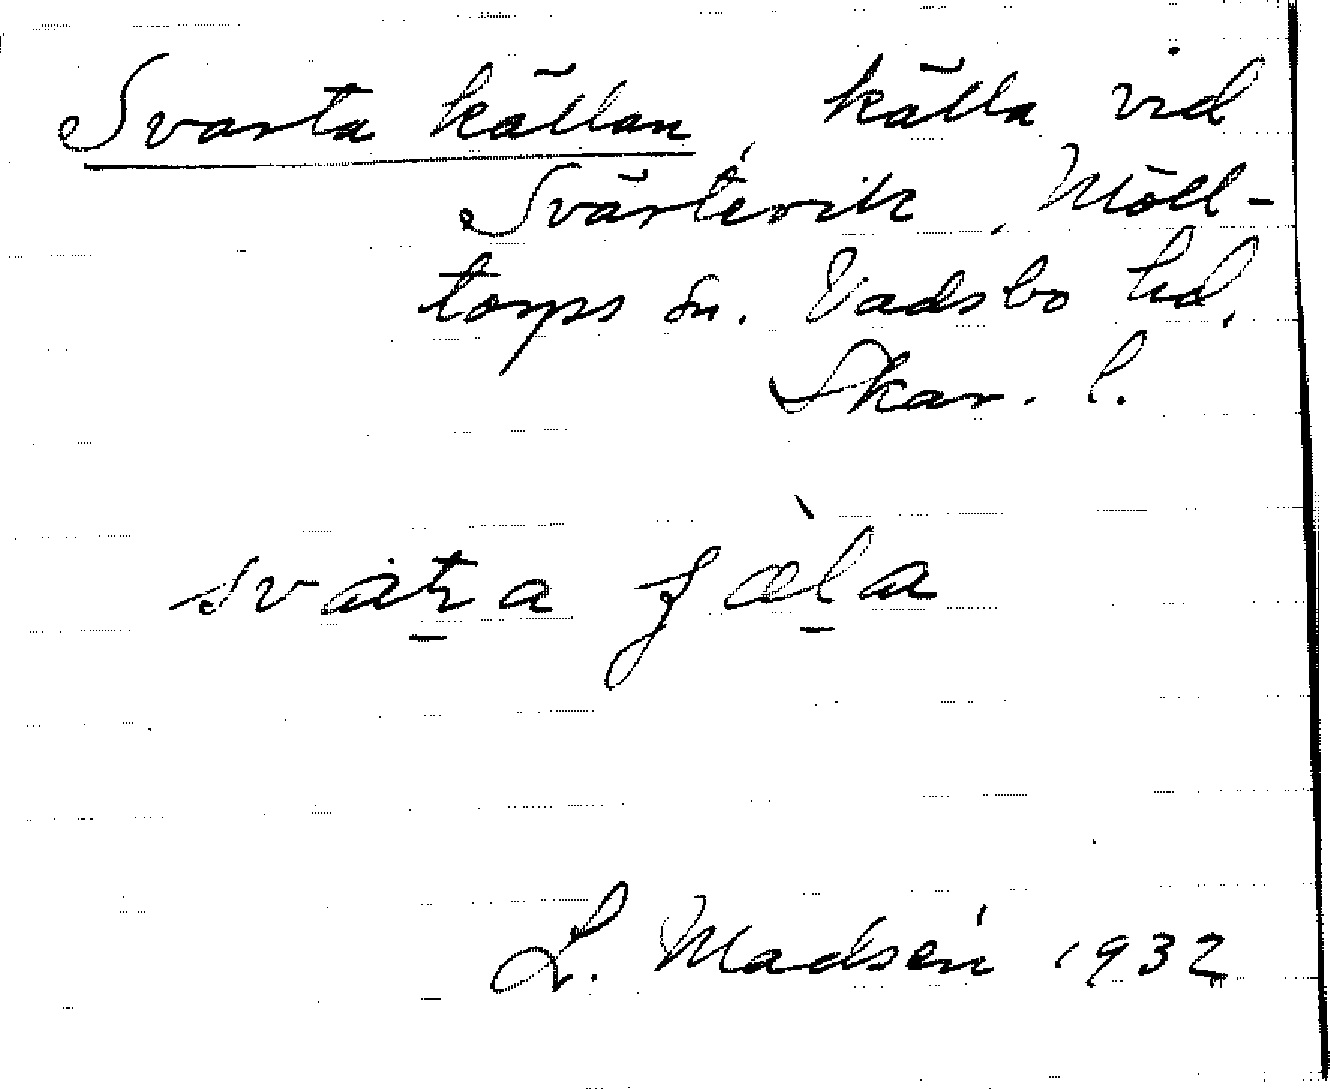 Svarta källan, källa vid
Svärtevik, Möll-
torps sn. Vadsbo hd.
Skar. l.
L. Madsén 1932